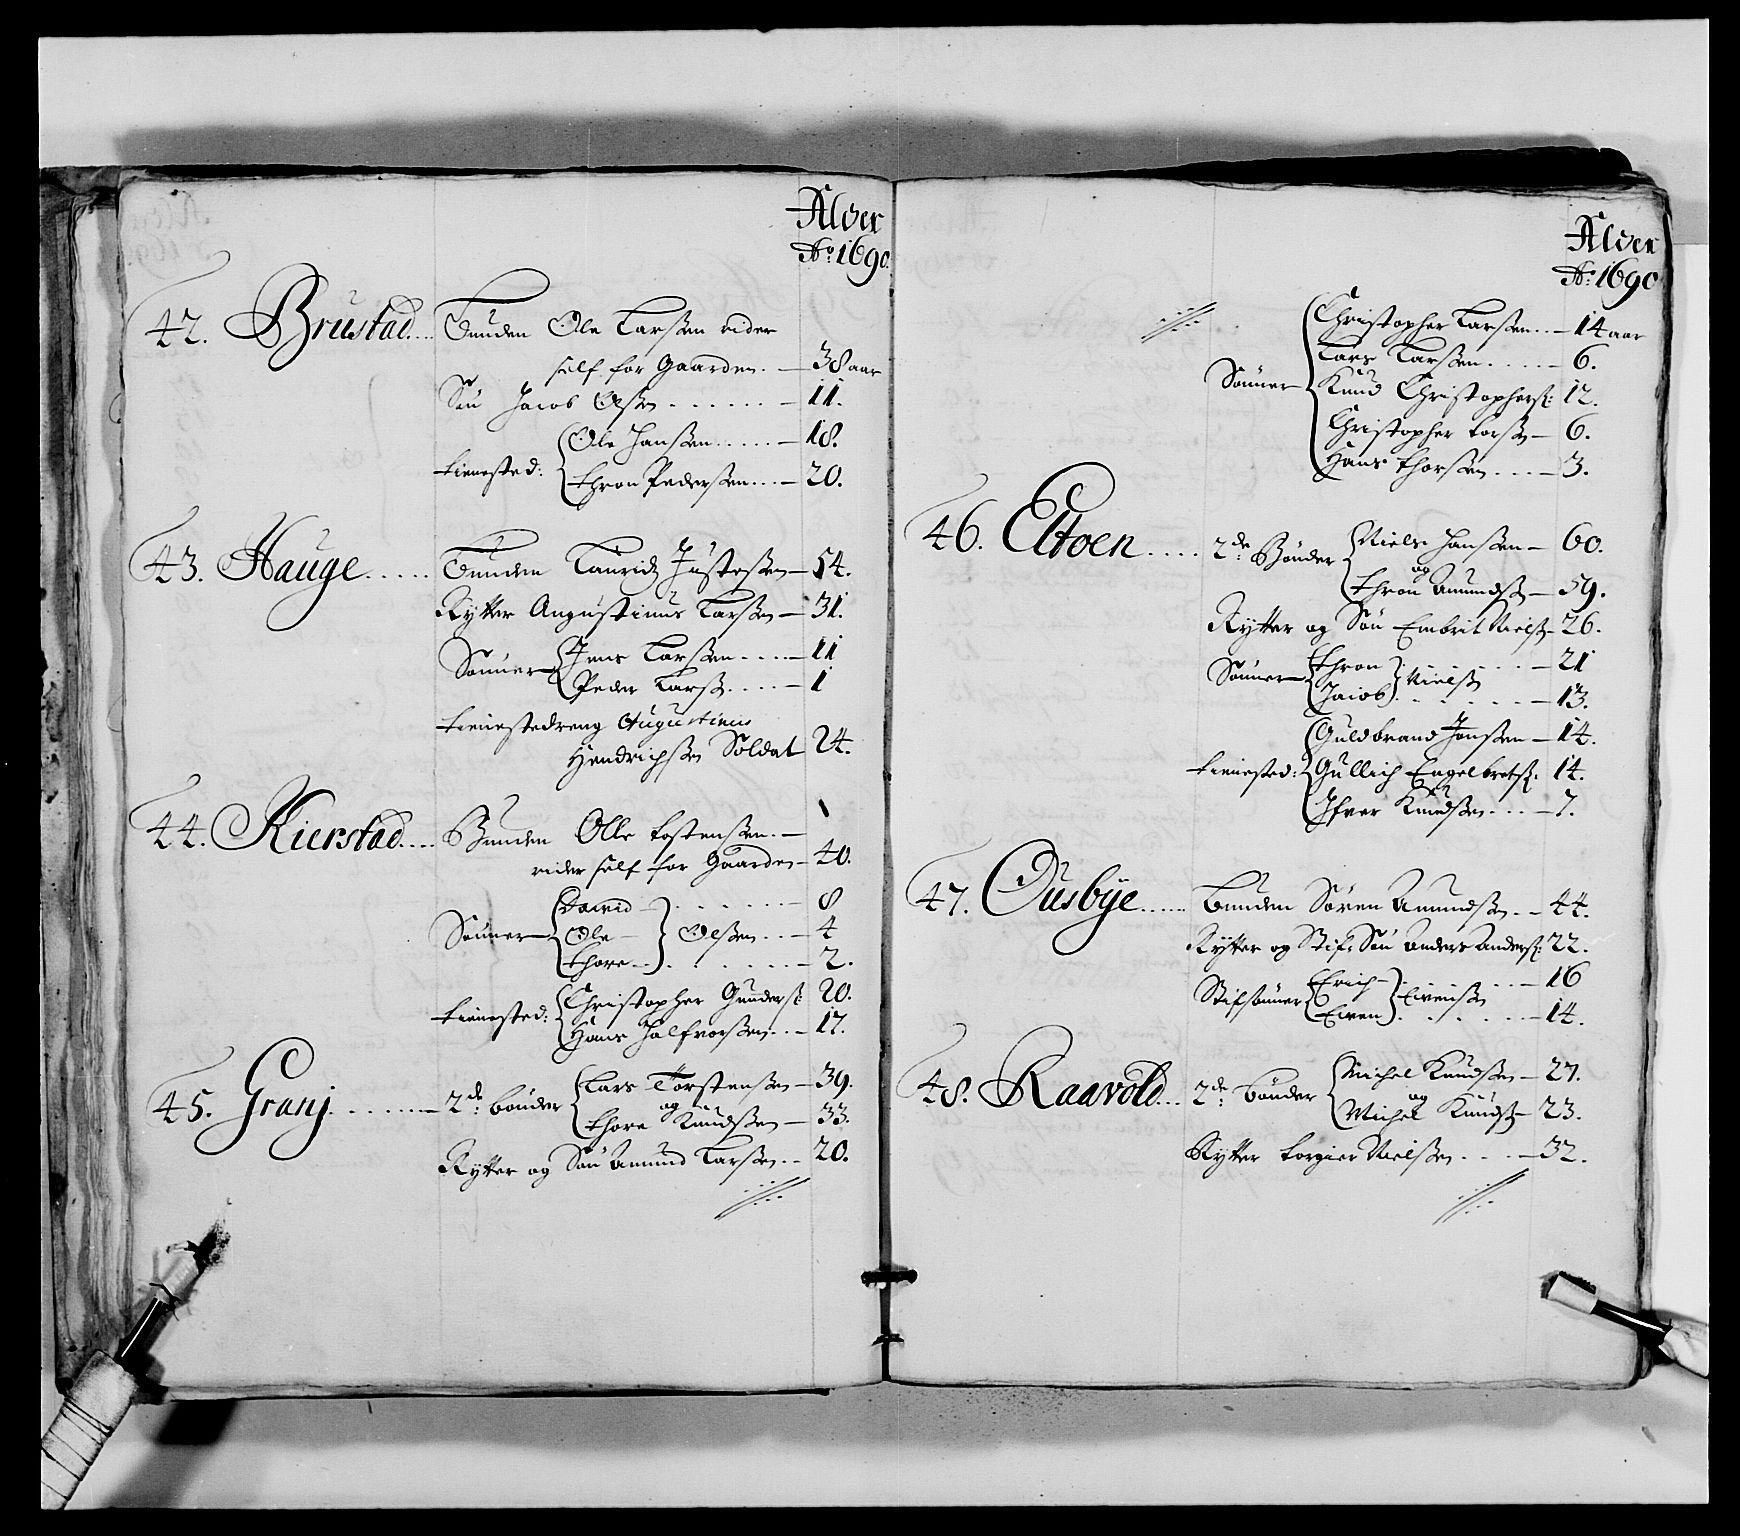 Alder
Ao: 1690.
42. Brustad.... Bunden Ole Larssen rider
self for Gaarden. — 38 aar
Søn Jacob Olssen ...... — 11.
Tienested: Ole Hanssen..... — 18.
Thron Pederssen... — 20.
43. Hauge..... Bunden Lauridz Justessen — 54.
Rytter Augustinus Larssen — 31.
Sønner Jens Larssen.... — 11
Peder Larss..... — 1
Tienestedreng Augustinus
Hendrichssen Soldat 24.
44. Kierstad.... Bunden Olle Tostenssen. —
rider self for Gaarden — 40.
Sønner Dawid — ....... — 8
Ole — Olssen... — 4
Thore — ....... — 2.
Tienested: Christopher Gunderss: 20.
Hans Halfvorssen... — 17.
45. Granj......... 2de: bønder Lars Torstenssen — 39.
og
Thore Knudssen — 33.
Rytter og Søn Amund Larssen.. — 20.
Alder
Ao: 1690
Sønner Christopher Larssen... — 14 aar
Lars Larssen..... — 6.
Knud Christopherss: 12.
Christopher Torss — 6.
Hans Thorssen.... — 3.
46. Eltoen..... 2de: Bønder Niels Hanssen — 60.
og
Thron Amundss — 59.
Rytter og Søn Embrit Nielss — 26.
Sønner Thron ...... — 21
Jacob Nielss ...... — 13.
Tienested: Guldbrand Jonssen — 14.
Gullich Engelbretss: 14.
Ifver Knudssen.... — 7.
47. Ousbÿe...... Bunden Søren Amundssen.. — 44.
Rytter og Stif: Søn Anders Anderss: 22.
Stifsønner Erich — ...... — 16
Ewen Ewenssen ...... — 14.
48. Raavold... 2de: Bønder Michel Knudssen — 27.
og
Michel Knudss — 23.
Rytter Torgier Nielssen.... — 32.